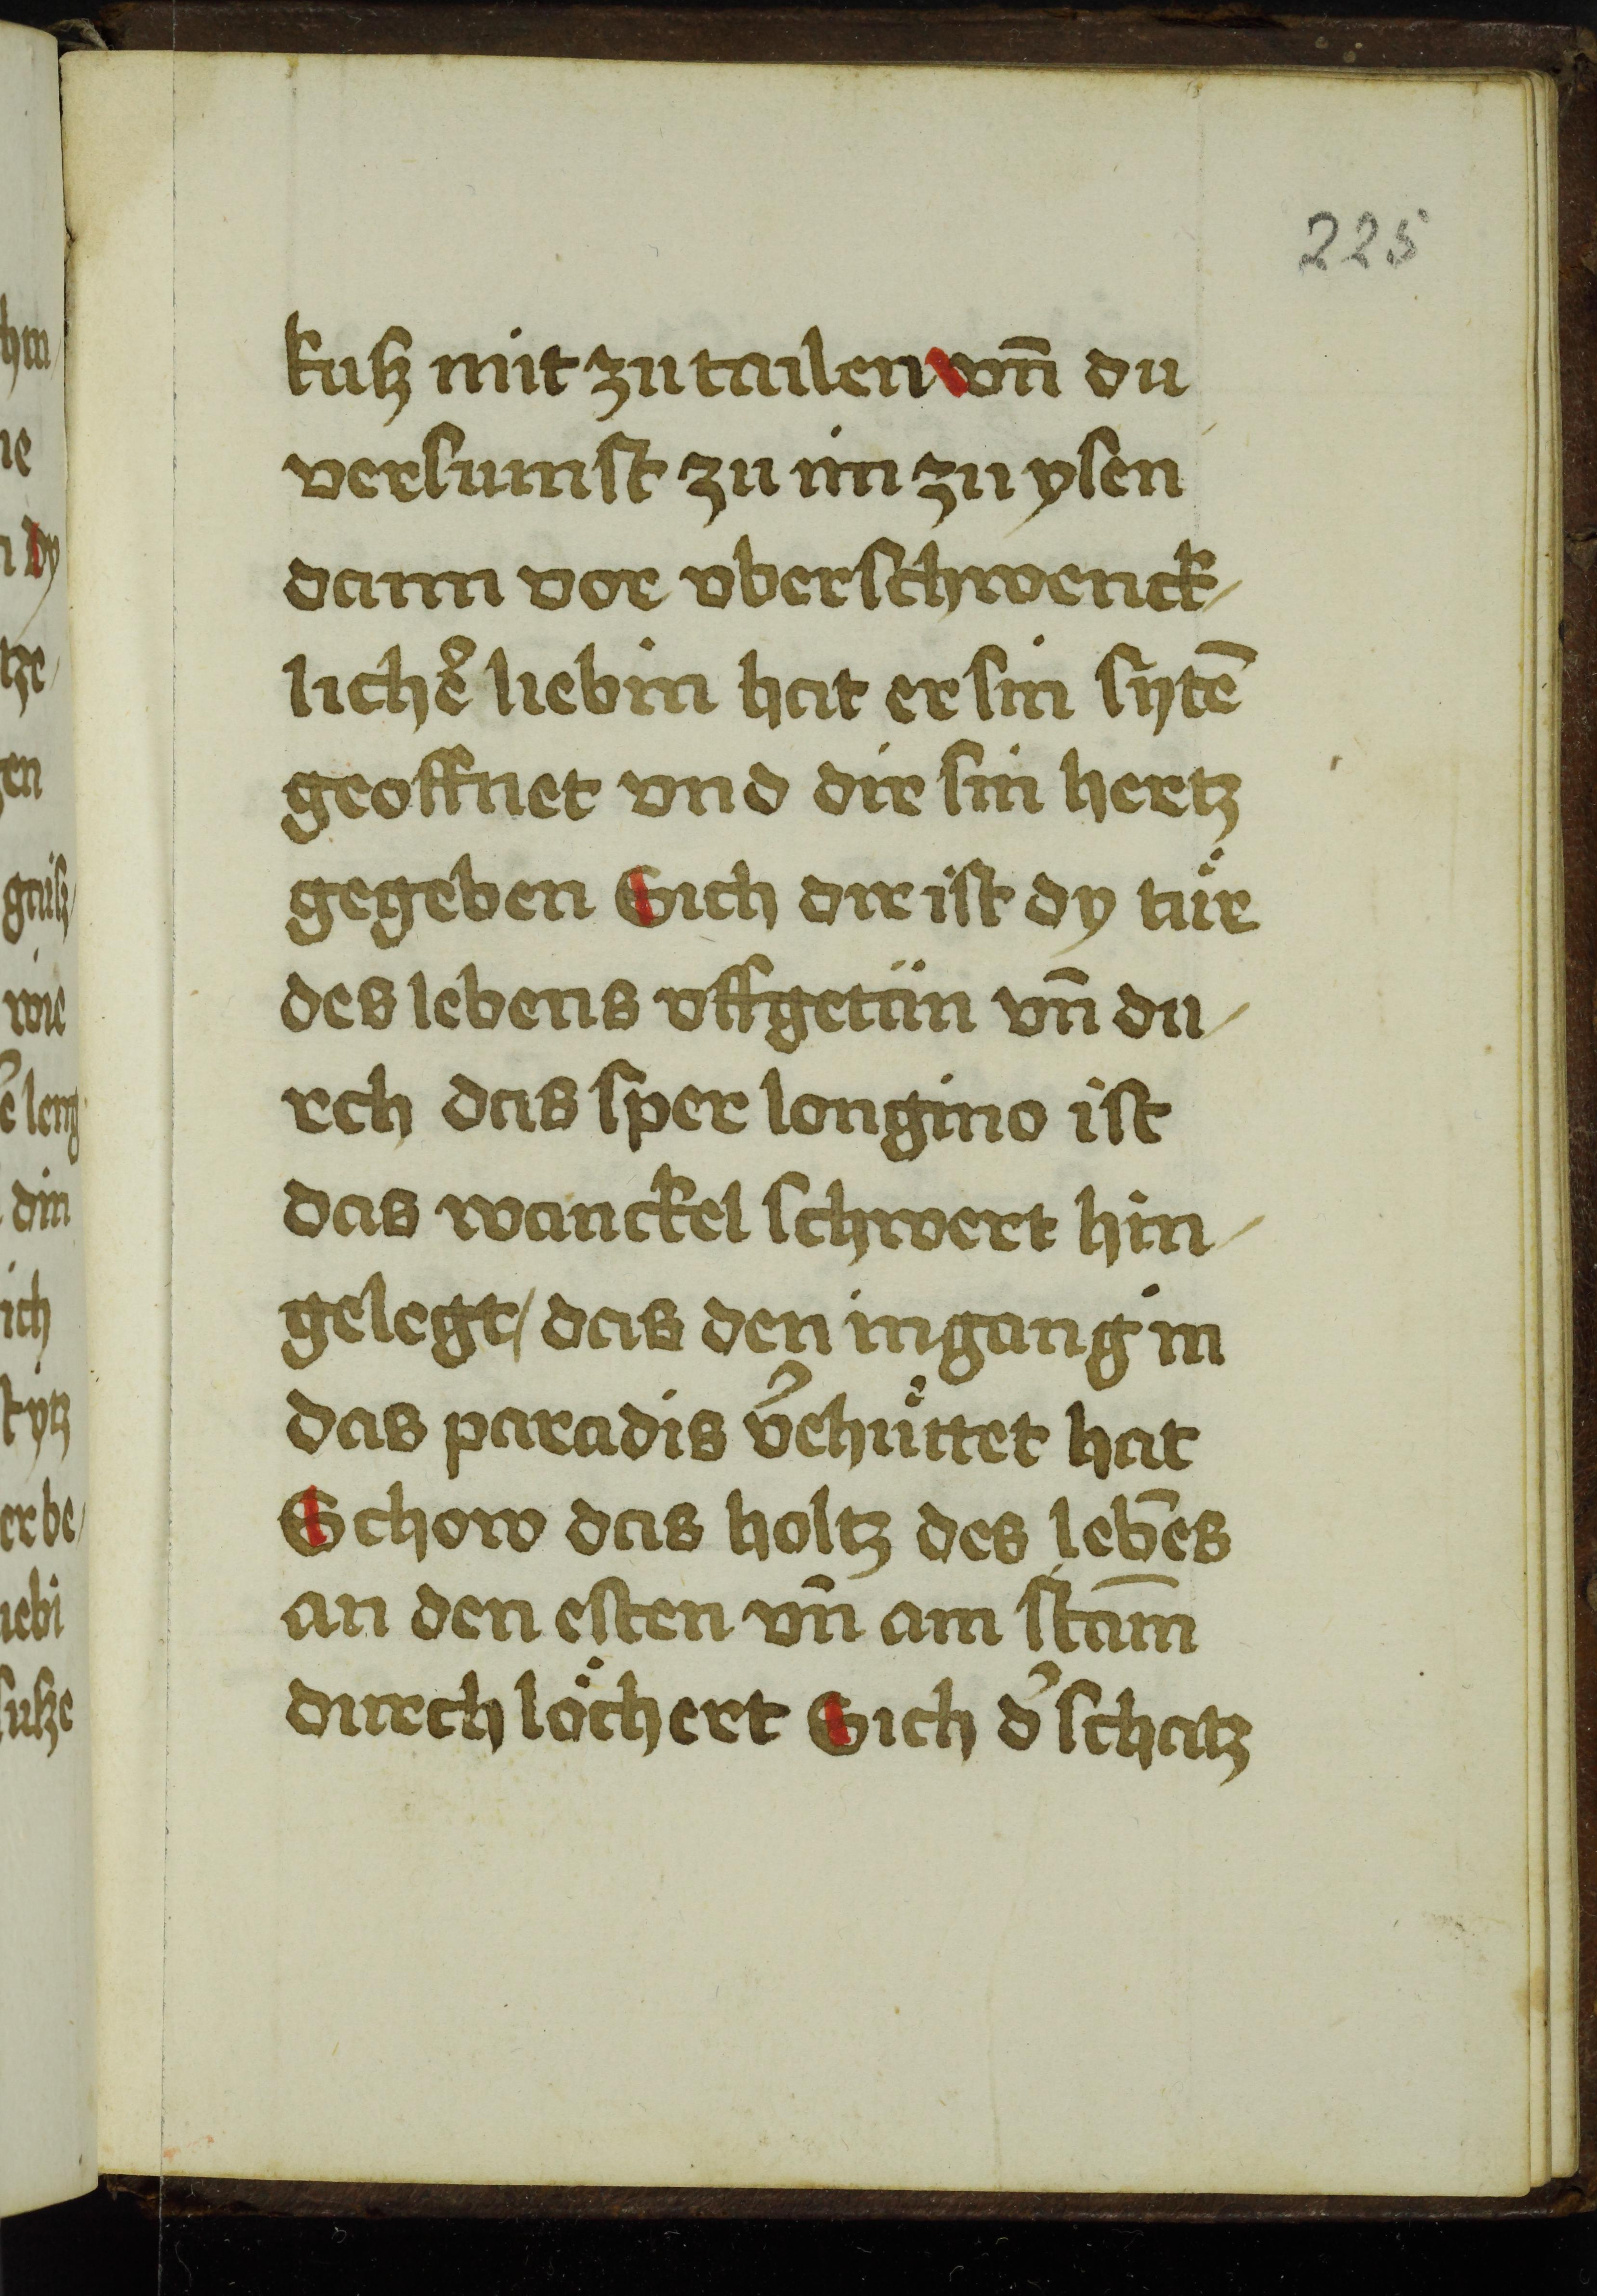 225
kusz mit zu tailen vn̄ du
versumst zu im zu ylen
dann vor vberschwenck/
licher̾ liebin hat er sin sytē
geoffnet vnd dir sin hertz
gegeben Sich dir ist dy tuͤr
des lebens vffgetün vn̄ du/
rch das sper longino ist
das wanckel schwert hin/
gelegt/ das den ingang in
das paradis v̾ehuͤttet hat
Schow das holtz des lebēs
an den esten vn̄ am stam̄
durch loͤchert Sich d̾ schatz